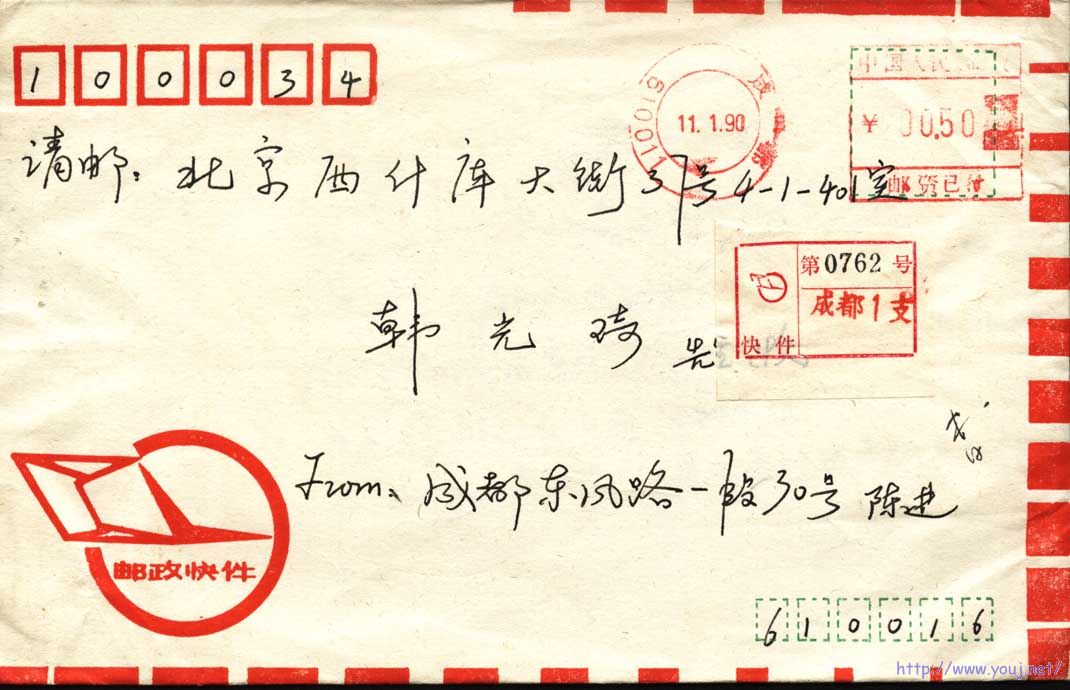 100034
11.1.90
成都
中国人民邮政
¥ 00.50
邮资已付
请邮: 北京西什库大街37号4-1-401室
第0762号
成都1支
快件
韩光琦 先
From: 成都东风路一段30号 陈进
邮政快件
610016
http://www.youj.net/